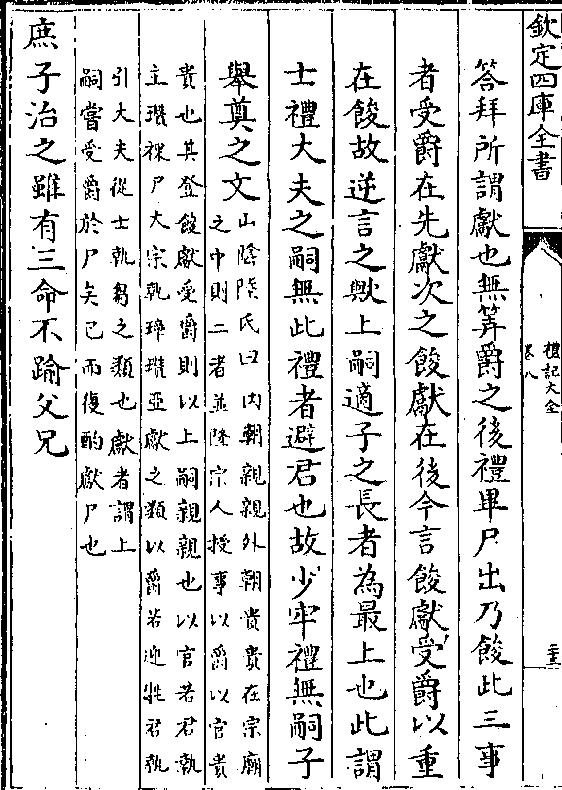 欽定四庫全書
禮記大全
卷八
三十三
答拜所謂獻也無筭爵之後禮畢尸出乃餕此三事
者受爵在先獻次之餕獻在後今言餕獻受爵以重
在餕故逆言之歟上嗣適子之長者為最上也此謂
士禮大夫之嗣無此禮者避君也故少牢禮無嗣子
舉奠之文
山隂陸氏曰内朝親親外朝貴貴在宗廟
之中則二者並隆宗人授事以爵以官貴
貴也其登餕獻受爵則以上嗣親親也以官若君執
圭瓚祼尸大宗執璋瓚亞獻之類以爵若迎牲君執
引大夫從士執芻之類也獻者謂上
嗣嘗受爵於尸矣已而復酌獻尸也
庶子治之雖有三命不踰父兄